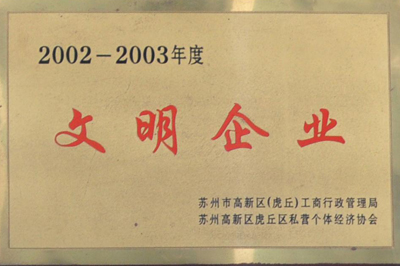 2002-2003年度
文明企业
苏州市高新区(虎丘)工商行政管理局
苏州高新区虎丘区私营个体经济协会